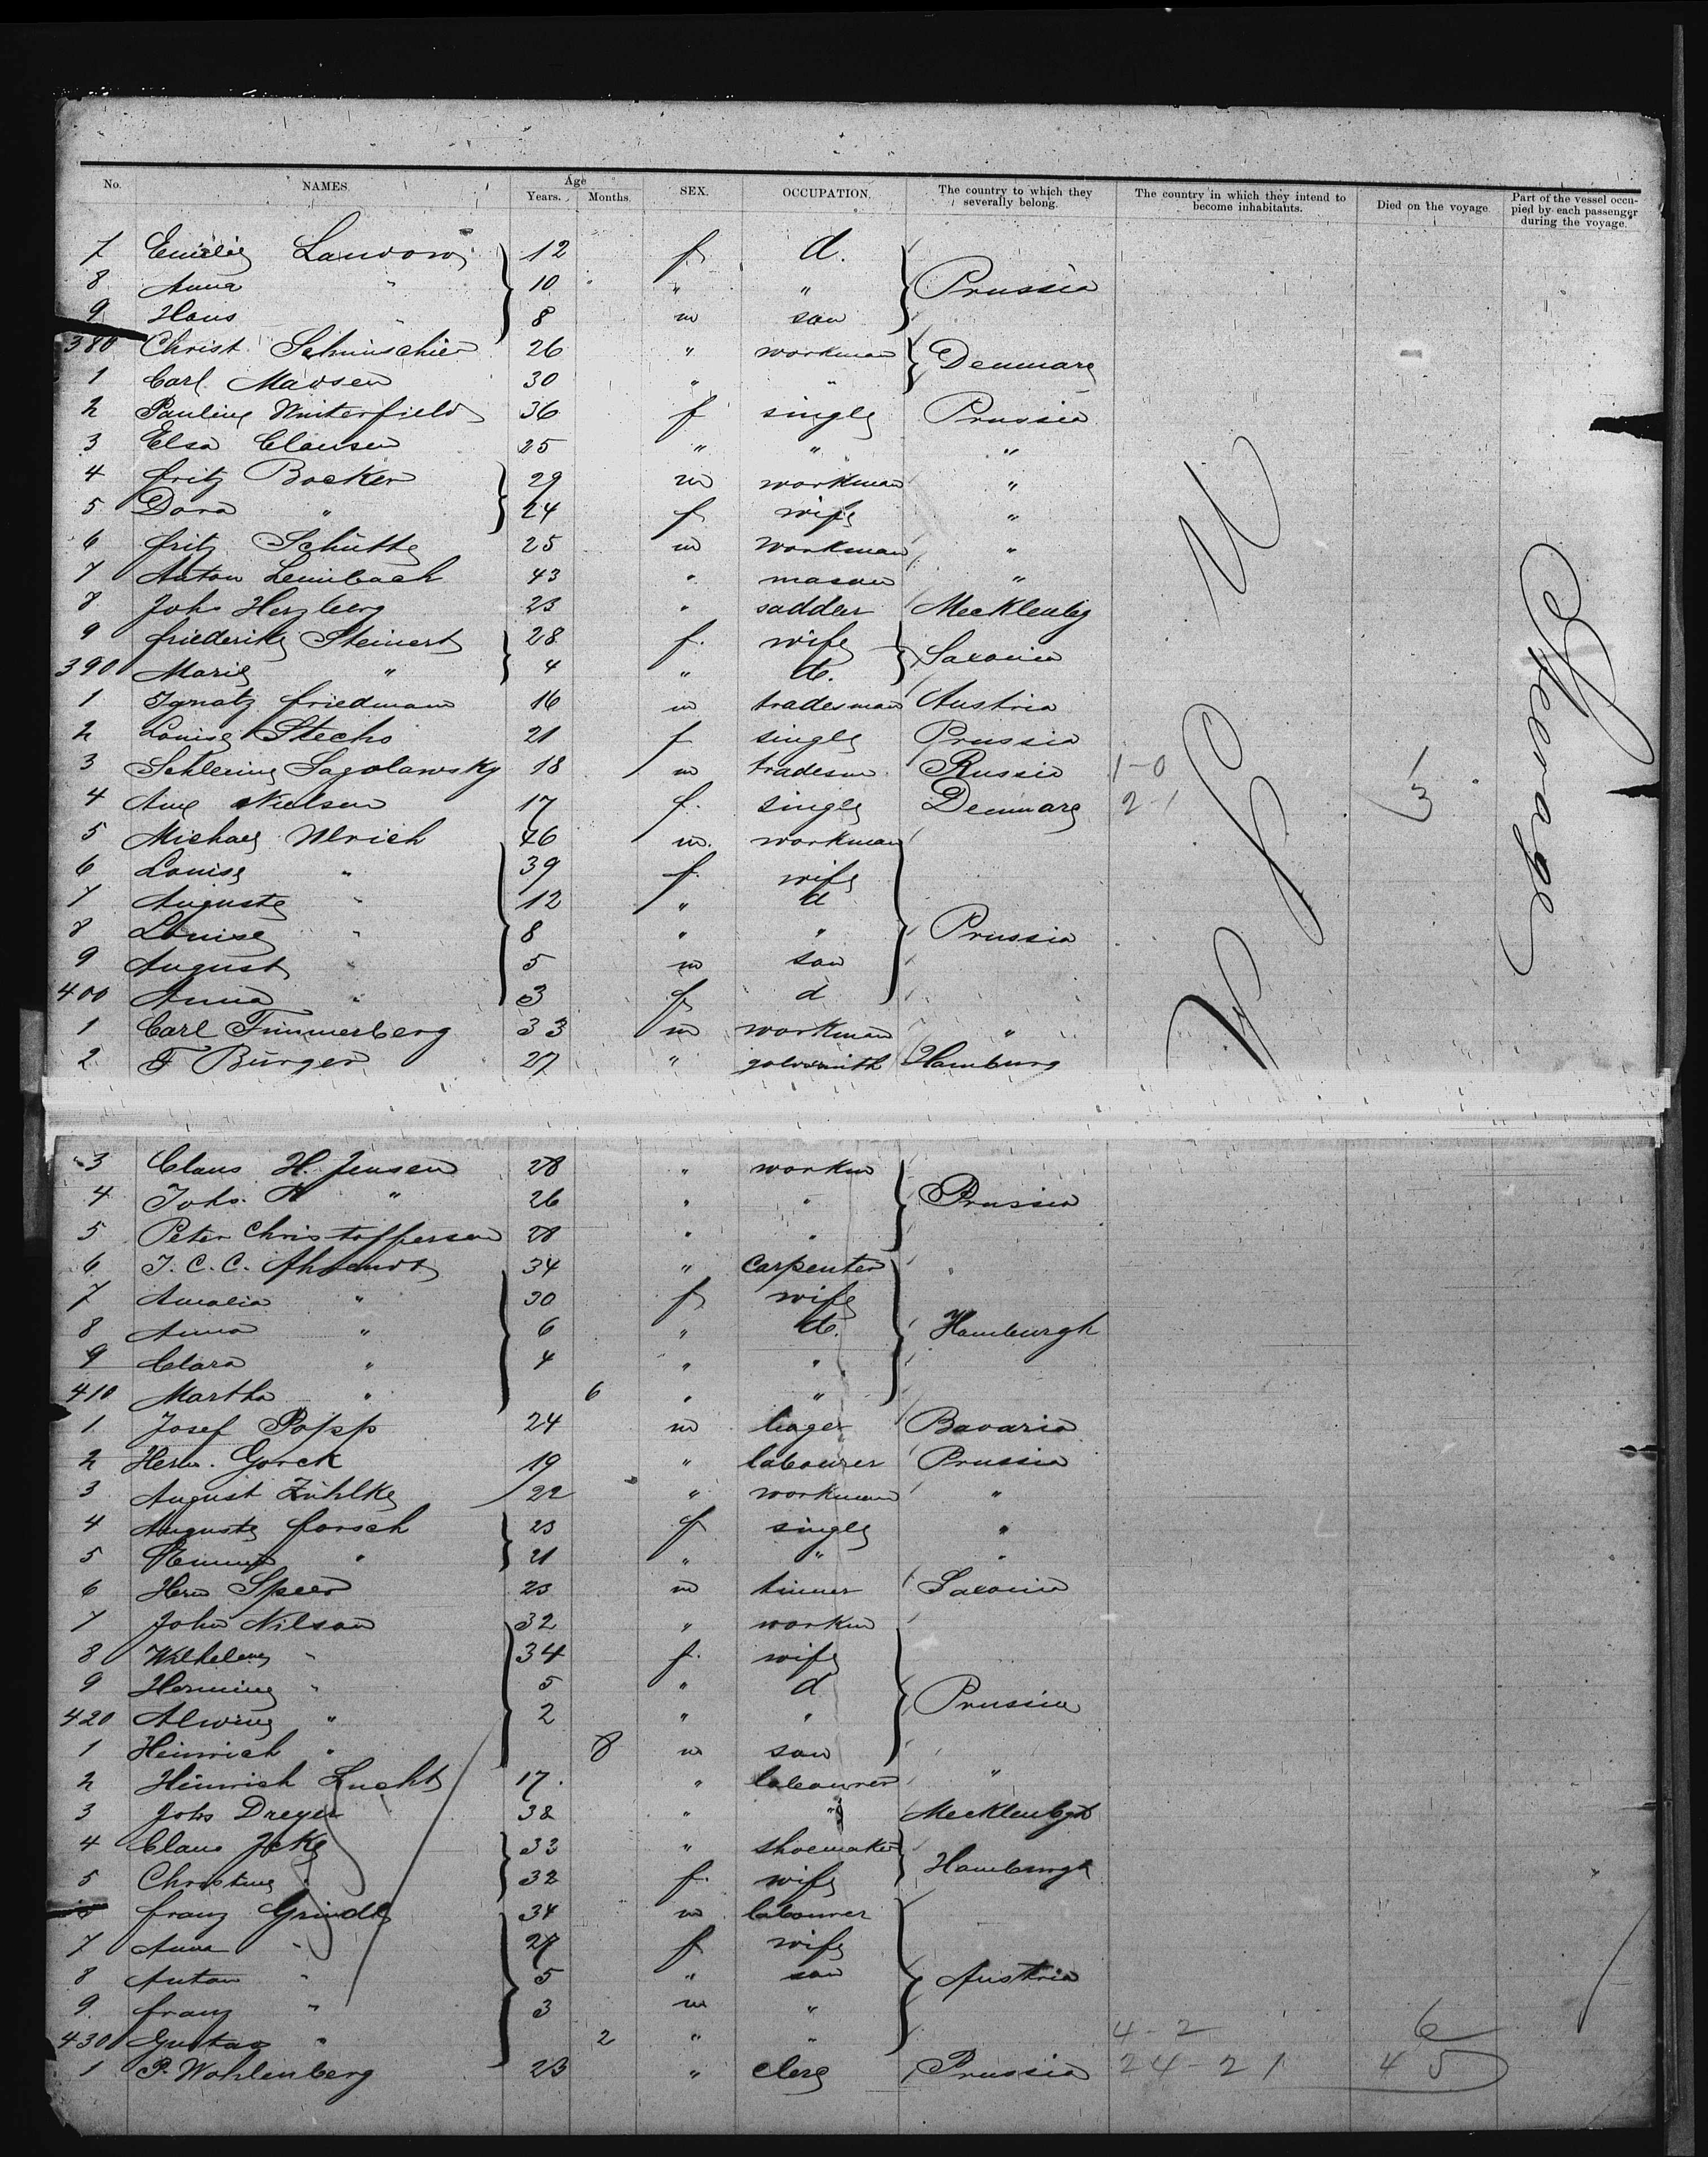 No. NAMES. Age Years. Months. SEX. OCCUPATION. The country to which they severally belong. The country in which they intend to become inhabitants. Died on the voyage. Part of the vessel occupied by each passenger during the voyage.
7 Emilie 12 f d.
8 Anna " 10 " " Prussia
9 Hans " 8 m son
380 Christ. 26 " workman Denmark
1 Carl Madsen 30 " "
2 Pauline Winterfield 36 f single Prussia
3 Elsa Clausen 25 " " "
4 Fritz Backer 29 m workman "
5 Dora " 24 f wife "
6 Fritz Schütte 25 m workman "
7 Anton Leimbach 43 " mason "
8 Johs Herzberg 23 " saddler Mecklenbg
9 Friederike Steinert 28 f. wife Saxonia
390 Marie " 4 " d.
1 Ignatz Friedmann 16 m tradesman Austria
2 Louise Stechs 21 f single Prussia
3 Sagolawsky 18 m tradesm Russia 1-0 1
4 Ane Nielsen 17 f. single Denmark 2-1 3
5 Michael Ulrich 46 m. workman
6 Louise " 39 f. wife
7 Auguste " 12 " d
8 Louise " 8 " " Prussia
9 August " 5 m son
400 Anna " 3 f d
1 Carl Timmerberg 33 m workman "
2 F Bürger 27 " goldsmith Hamburg
U S
Steerage
3 Claus H. Jensen 28 " workm
4 Johs. A " 26 " " Prussia
5 Peter Christoffersen 28 " "
6 J. C. C. Ahrendt 34 " carpenter
7 Amalia " 30 f wife
8 Anna " 6 " d. Hamburgh
9 Clara " 4 " "
410 Martha " 6 " "
1 Josef Popp 24 m Bavaria
2 Herm. Gorek 19 " labourer Prussia
3 August Zühlke 22 " workman "
4 Auguste Forsch 23 f single "
5 " 21 " " "
6 Herm Speer 23 m tinner Saxonia
7 John Nilson 32 " workm
8 Wilhelmine " 34 f. wife
9 Hermine " 5 " d Prussia
420 Alwine " 2 " "
1 Heinrich " 8 m son
2 Heinrich Lucht 17 " labourer "
3 Johs Dreyer 38 " " Mecklenbgh
4 Claus 33 " shoemaker Hamburgh
5 Christine " 32 f. wife
Franz Grindl 34 m labourer
7 Anna " 27 f wife
8 Anton " 5 " son Austria
9 Franz " 3 m "
430 Gustav " 2 " " 4-2 6
1 P. Wohlenberg 23 " clerk Prussia 24-21 45